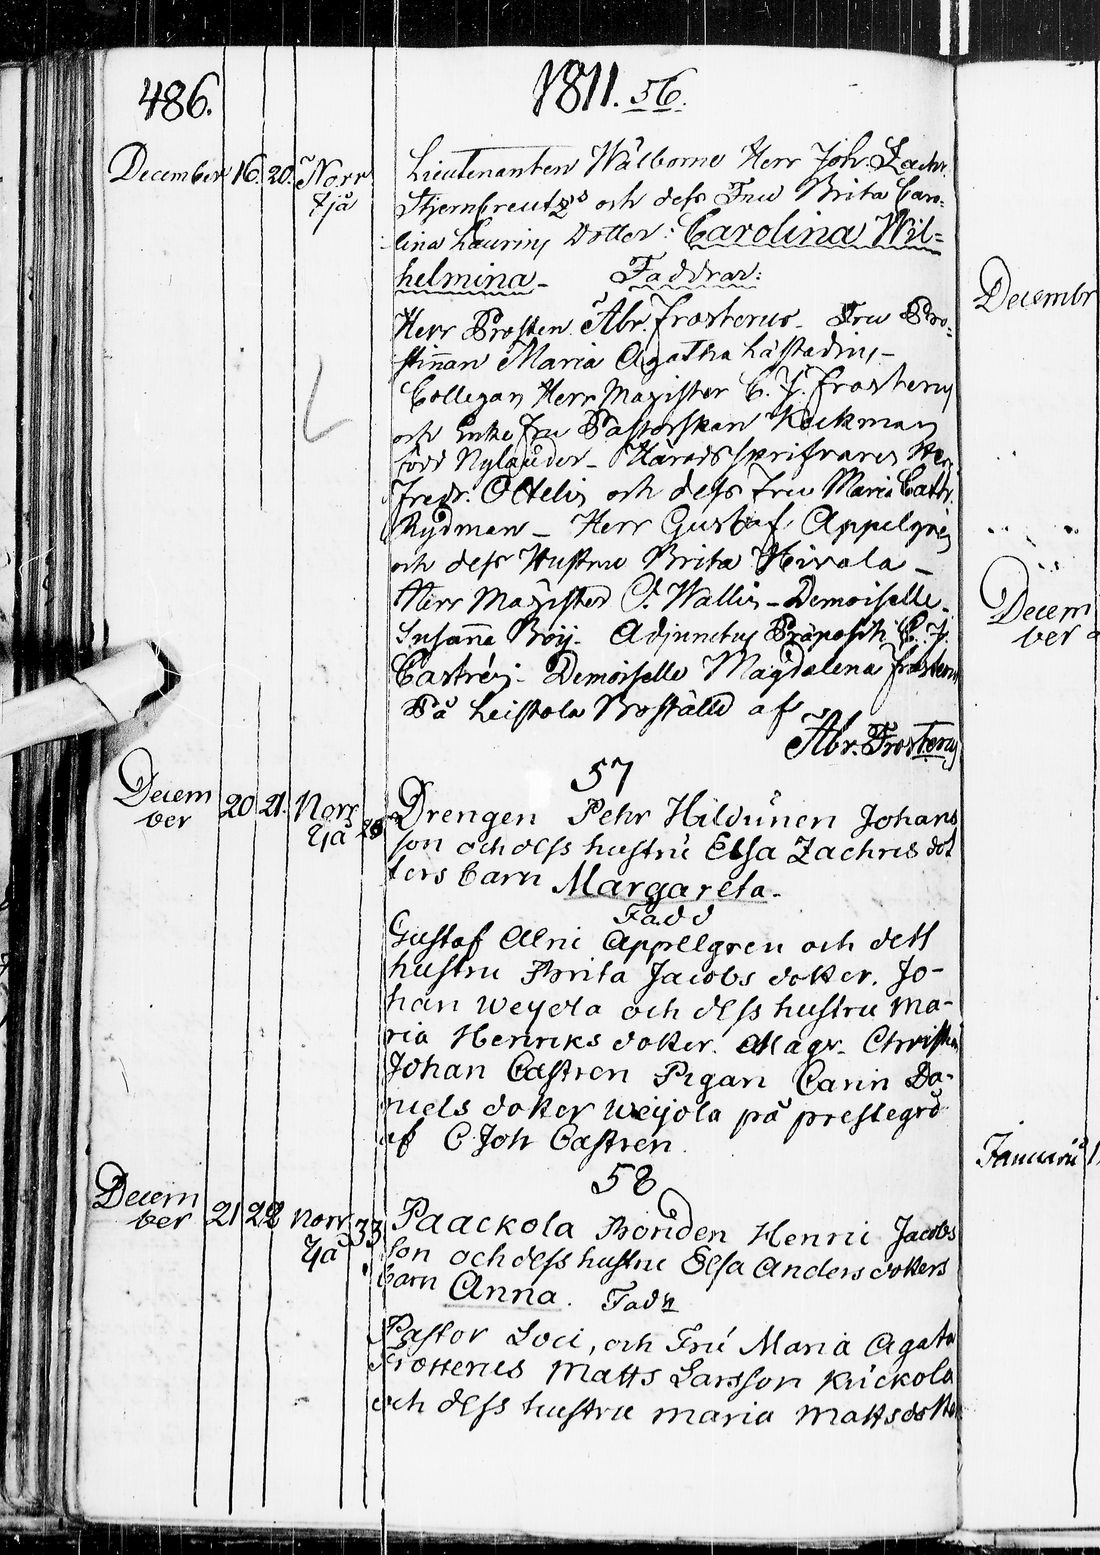 486.
1811. 56.
December 16. 20. Norr
tjä
Lieutenanten Wälborne Herr Joh. Zachr.
Stjerncreutz's och dess Fru Brita Caro-
lina Laurins Dotter: Carolina Wil-
helmina - Faddrar:
Herr Prosten Abr. Frosterus - Fru Pro-
stinnan Maria Agatha Lästadius -
Collegan Herr Magister C. J. Frosterus
och Enke Fru Pastorskan Keckman
född Nylander - Härads
Fredr. och dess Fru Maria Cathr.
Rydman - Herr Gustaf Appelgren
och dess Hustru Brita Heivala -
Herr Magister J. Wallin - Demoiselle
Susanna Roij - Adjunctus C. J.
Castrén - Demoiselle Magdalena Frosterus
På Leistola Boställe af
Abr. Frosterus
57
Decem
ber 20 21. Norr
tjä 29
Drengen Pehr Hildünen Johans
son och dess hustru Elsa Zachris dot
ters barn Margareta -
Fadd
Gustaf Alni Appellgren och dess
hustru Brita Jacobs dotter. Jo-
han Weijola och dess hustru Ma-
ria Henriks dotter. Magr. Christian
Johan Castren Pigan Carin Da-
niels dotter Weijola på prestegrd
af C Joh Castren
58
Decem
ber 21 22 Norr
tjä 33
Paackola Bonden Henric Jacobs
son och dess hustru Elsa Anders dotters
barn Anna. Fadr
Pastor Loci, och Fru Maria Agata
Frosterus Matts Larsson Kuckola
och dess hustru Maria Mattsdotter
Decembr
Decem
ber
Januarii 1